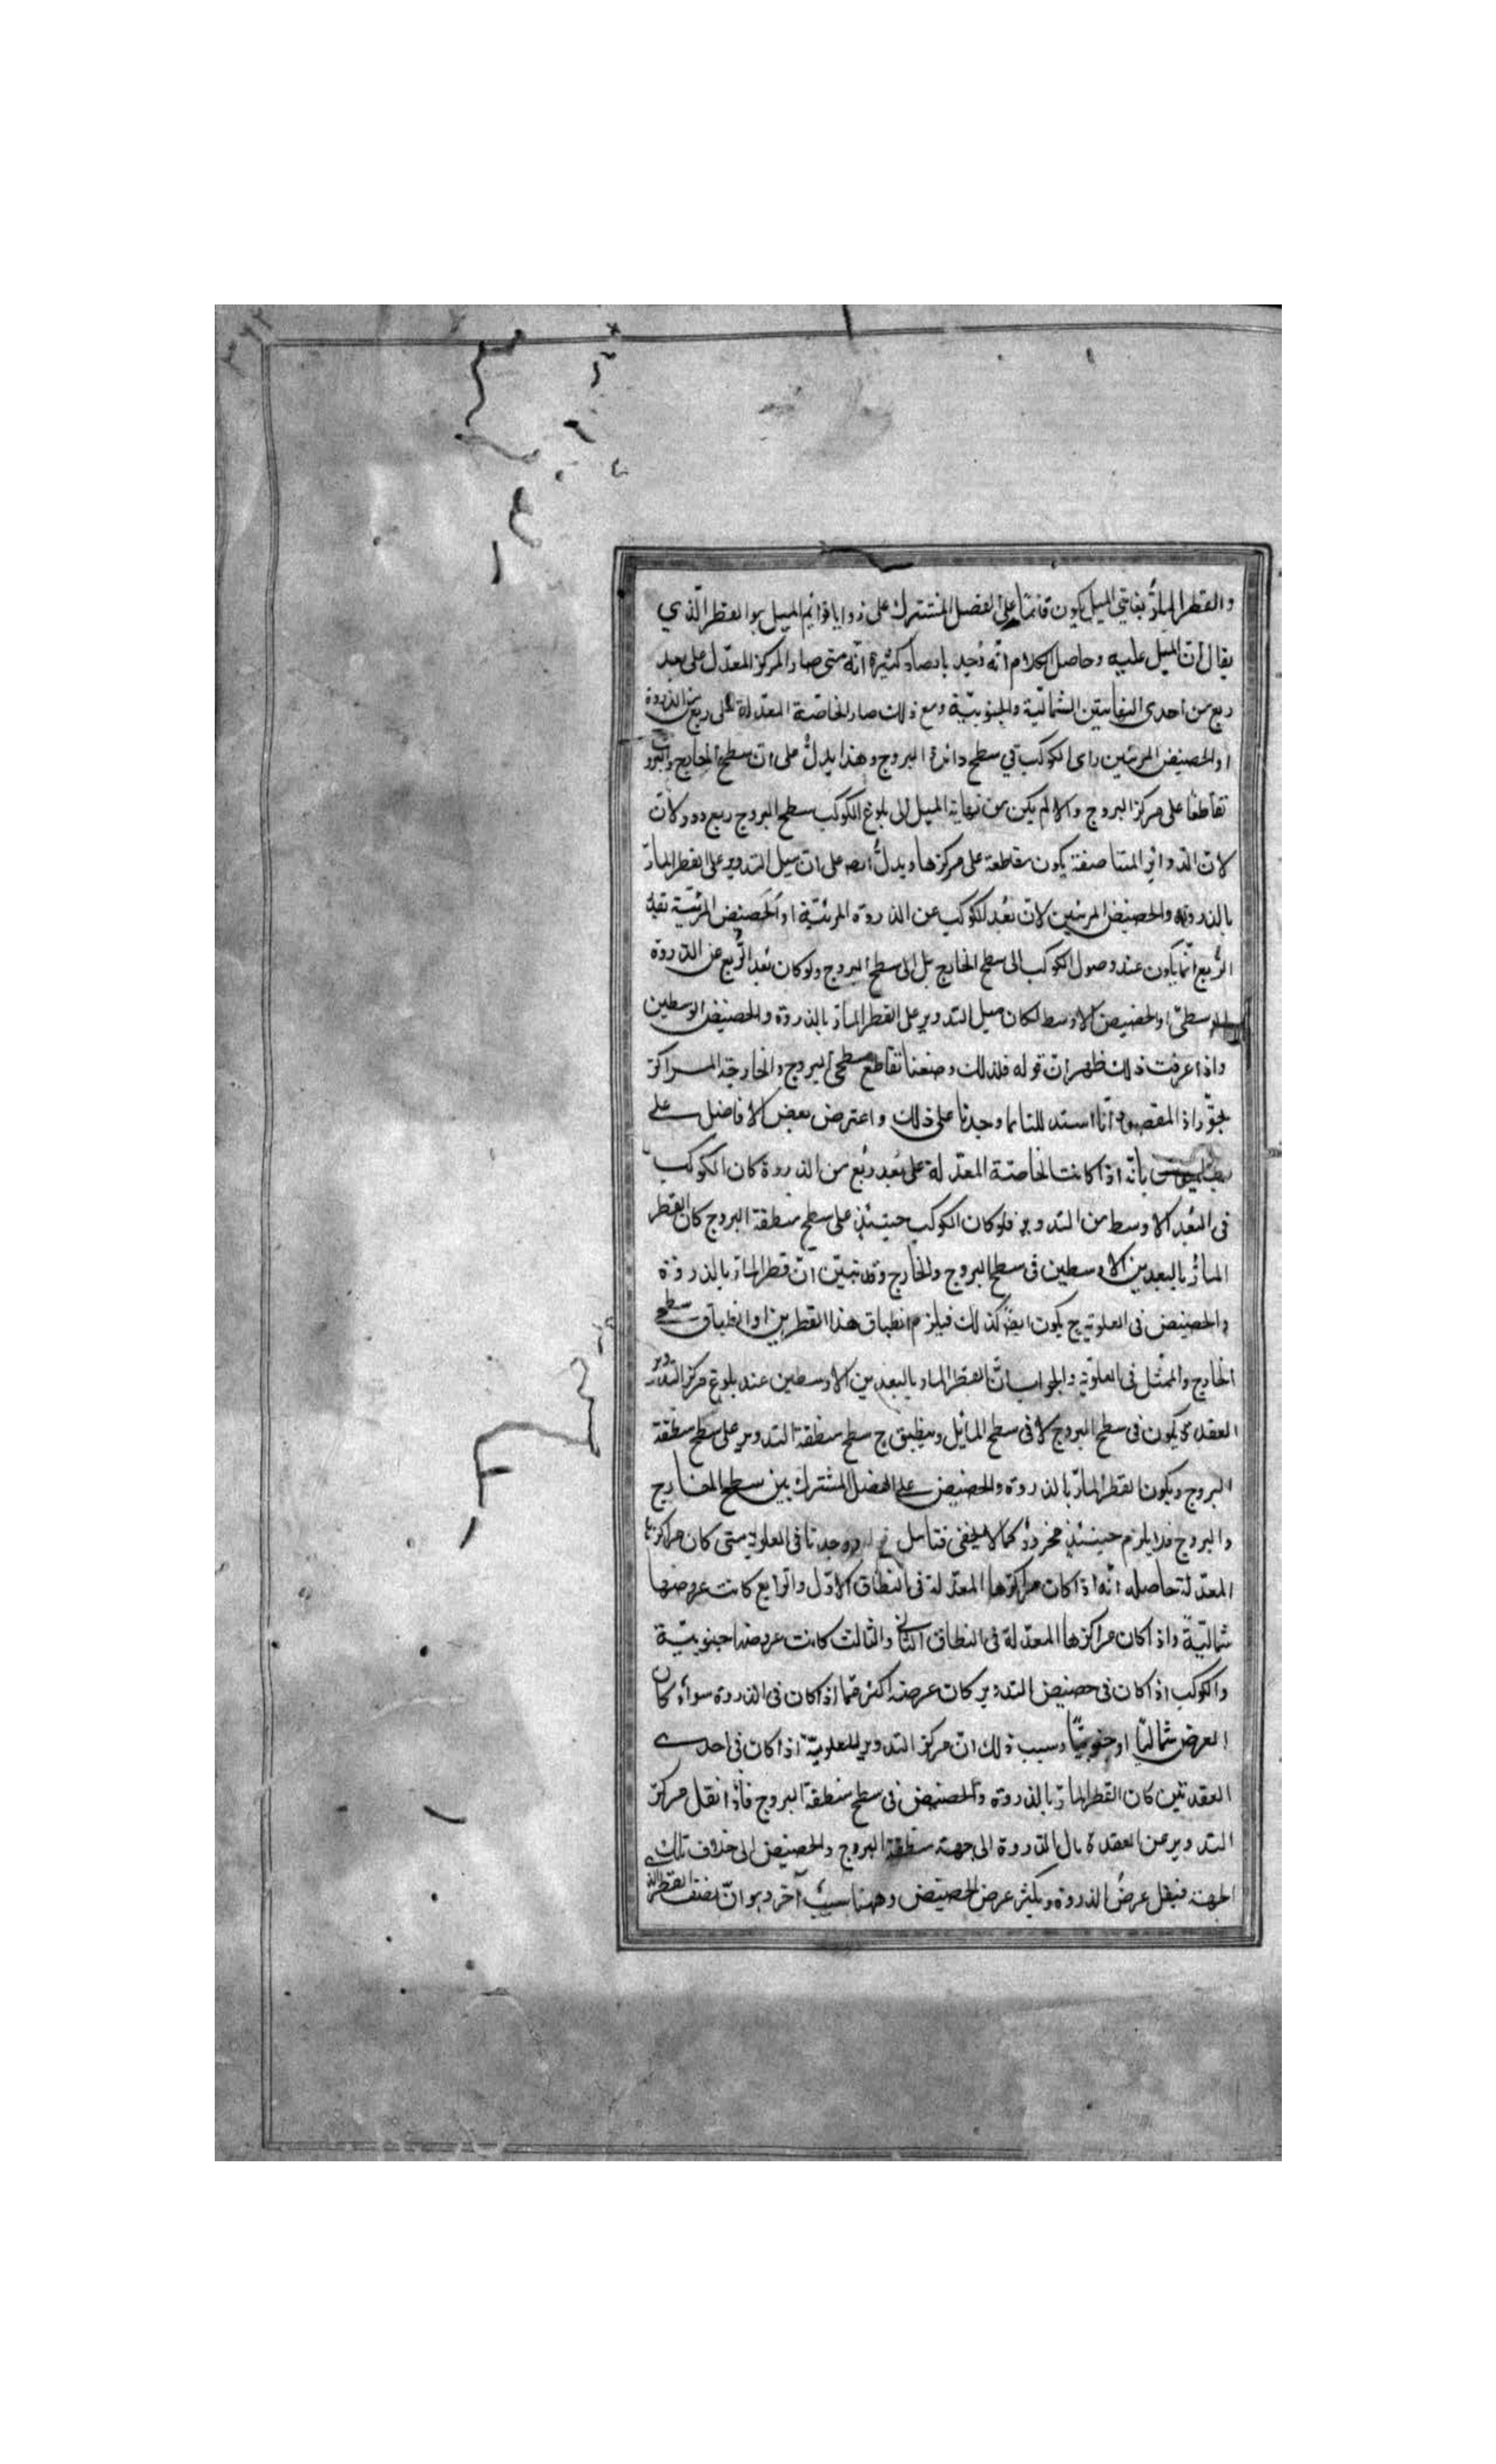 والقطر المارّ بغايتي الميل يكون قائمًا على الفصل المشترك على زوايا قوائم الميل هو القطر الّذي
يقال انّ الميل عليه وحاصل الكلام انّه وُجد بارصاد كثيرة انّه متى صار المركز المعدّل على بعد
ربع من احدى النهايتين الشماليّة والجنوبيّة ومع ذلك صار الخاصّة المعدّلة على ربع من الذروة
او الحضيض المرئيين رأى الكوكب في سطح دائرة البروج وهذا يدلّ على انّ سطح الخارج والبروج
تقاطعا على مركز البروج والا لم يكن من نهاية الميل الى بلوغ الكوكب سطح البروج ربع دور لانّ
لانّ الدوائر المتناصفة يكون متقاطعة على مركزها ويدلّ ايضا على انّ ميل التدوير على القطر المارّ
بالذروة والحضيض المرئيين لانّ بُعد الكوكب عن الذروة المرئيّة او الحضيض المرئيّة بقدر
الرُبع انّما يكون عند وصول الكوكب الى سطح الخارج بل الى سطح البروج ولو كان بُعد الرّبع عن الذروة
الوسطىّ او الحضيض الاوسط لكان ميل التدوير على القطر المارّ بالذروة والحضيض الوسطين
واذا عرفت ذلك ظهر انّ قوله فلذلك وضعنا تقاطع سطحى البروج والخارجة المراكز
بجوّز اذ المقصود انّا استدللنا بما وجدنا على ذلك واعترض بعض الافاضل على
بطلميوس بانّه اذا كانت الخاصّة المعدّلة على بُعد رُبع من الذروة كان الكوكب
فى البُعد الاوسط من التدوير فلو كان الكوكب حينئذ على سطح منطقة البروج كان القطر
المارّ بالبعدين الاوسطين فى سطح البروج والخارج وقد تبيّن انّ قطر المارّ بالذروة
والحضيض فى العلويّة ح يكون ايضًا كذلك فيلزم انطباق هذا القطرين او انطباق سطحى
الخارج والممثّل فى العلويّة والجواب انّ القطر المارّ بالبعدين الاوسطين عند بلوغ مركز التدوير
العقدة يكون فى سطح البروج لا فى سطح المائل وينطبق ح سطح منطقة التدوير على سطح منطقة
البروج ويكون القطر المارّ بالذروة والحضيض على الفصل المشترك بين سطح الخارج
والبروج فلا يلزم حينئذ محذورٌ كما لا يخفى فتامل ووجدنا فى العلويّة متى كان مراكزها
المعدّلة حاصله انّه اذا كان مراكزها المعدّلة فى النطاق الاوّل والرّابع كانت عروضها
شماليّةً واذا كان مراكزها المعدّلة فى النطاق الثانى والثالث كانت عروضها جنوبيّة
والكوكب اذا كان فى حضيض التدوير كان عرضه اكثر ممّا اذا كان فى الذروة سواء كان
العرض شماليّا او جنوبيّا وسبب ذلك انّ مركز التدوير للعلويّة اذا كان فى احدى
العقدتين كان القطر المارّ بالذروة والحضيض فى سطح منطقة البروج فاذا انتقل مركز
التدوير عن العقدة مال الذروة الى جهة منطقة البروج والحضيض الى خلاف تلك
الجهة فيقل عرضُ الذروة ويكثر عرض الحضيض وههنا سببٌ آخر وهو انّ نصف القطر الذى